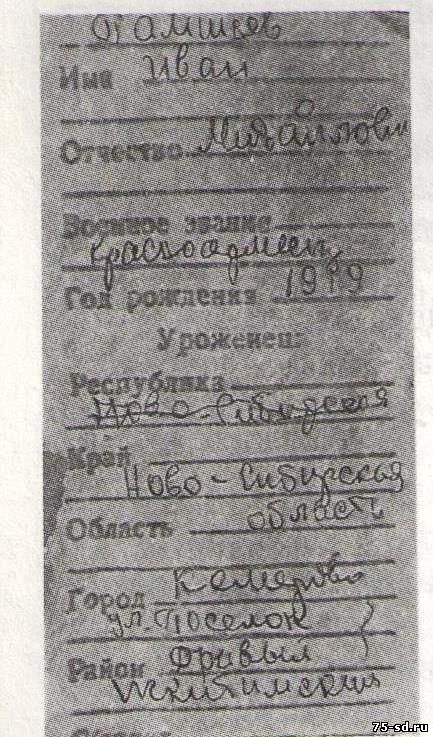 Имя Иван
Отчество Михайлович
Военное звание
Красноармеец
Год рождения 1919
Уроженец:
Республика
Ново-Сибирская
Край
Ново-Сибирская
Область область
Город Кемерово
ул. Поселок
Район
75-sd.ru